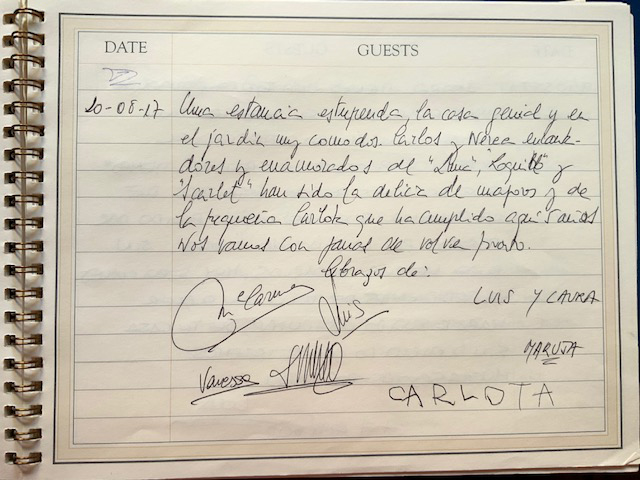 DATE GUESTS
20-08-17 Una estancia estupenda, la casa genial y en
el jardín muy comodos. Carlos y Nerea encanta-
dores y enamorados de "Luna", y
"Scarlet" han sido la delicia de mayores y de
la pequeña Carlota que ha cumplido aquí 5 años
Nos vamos con ganas de volver pronto.
Abrazos de:
Mª Carmen Luis LUIS Y LAURA
MARUJA
Vanessa
CARLOTA